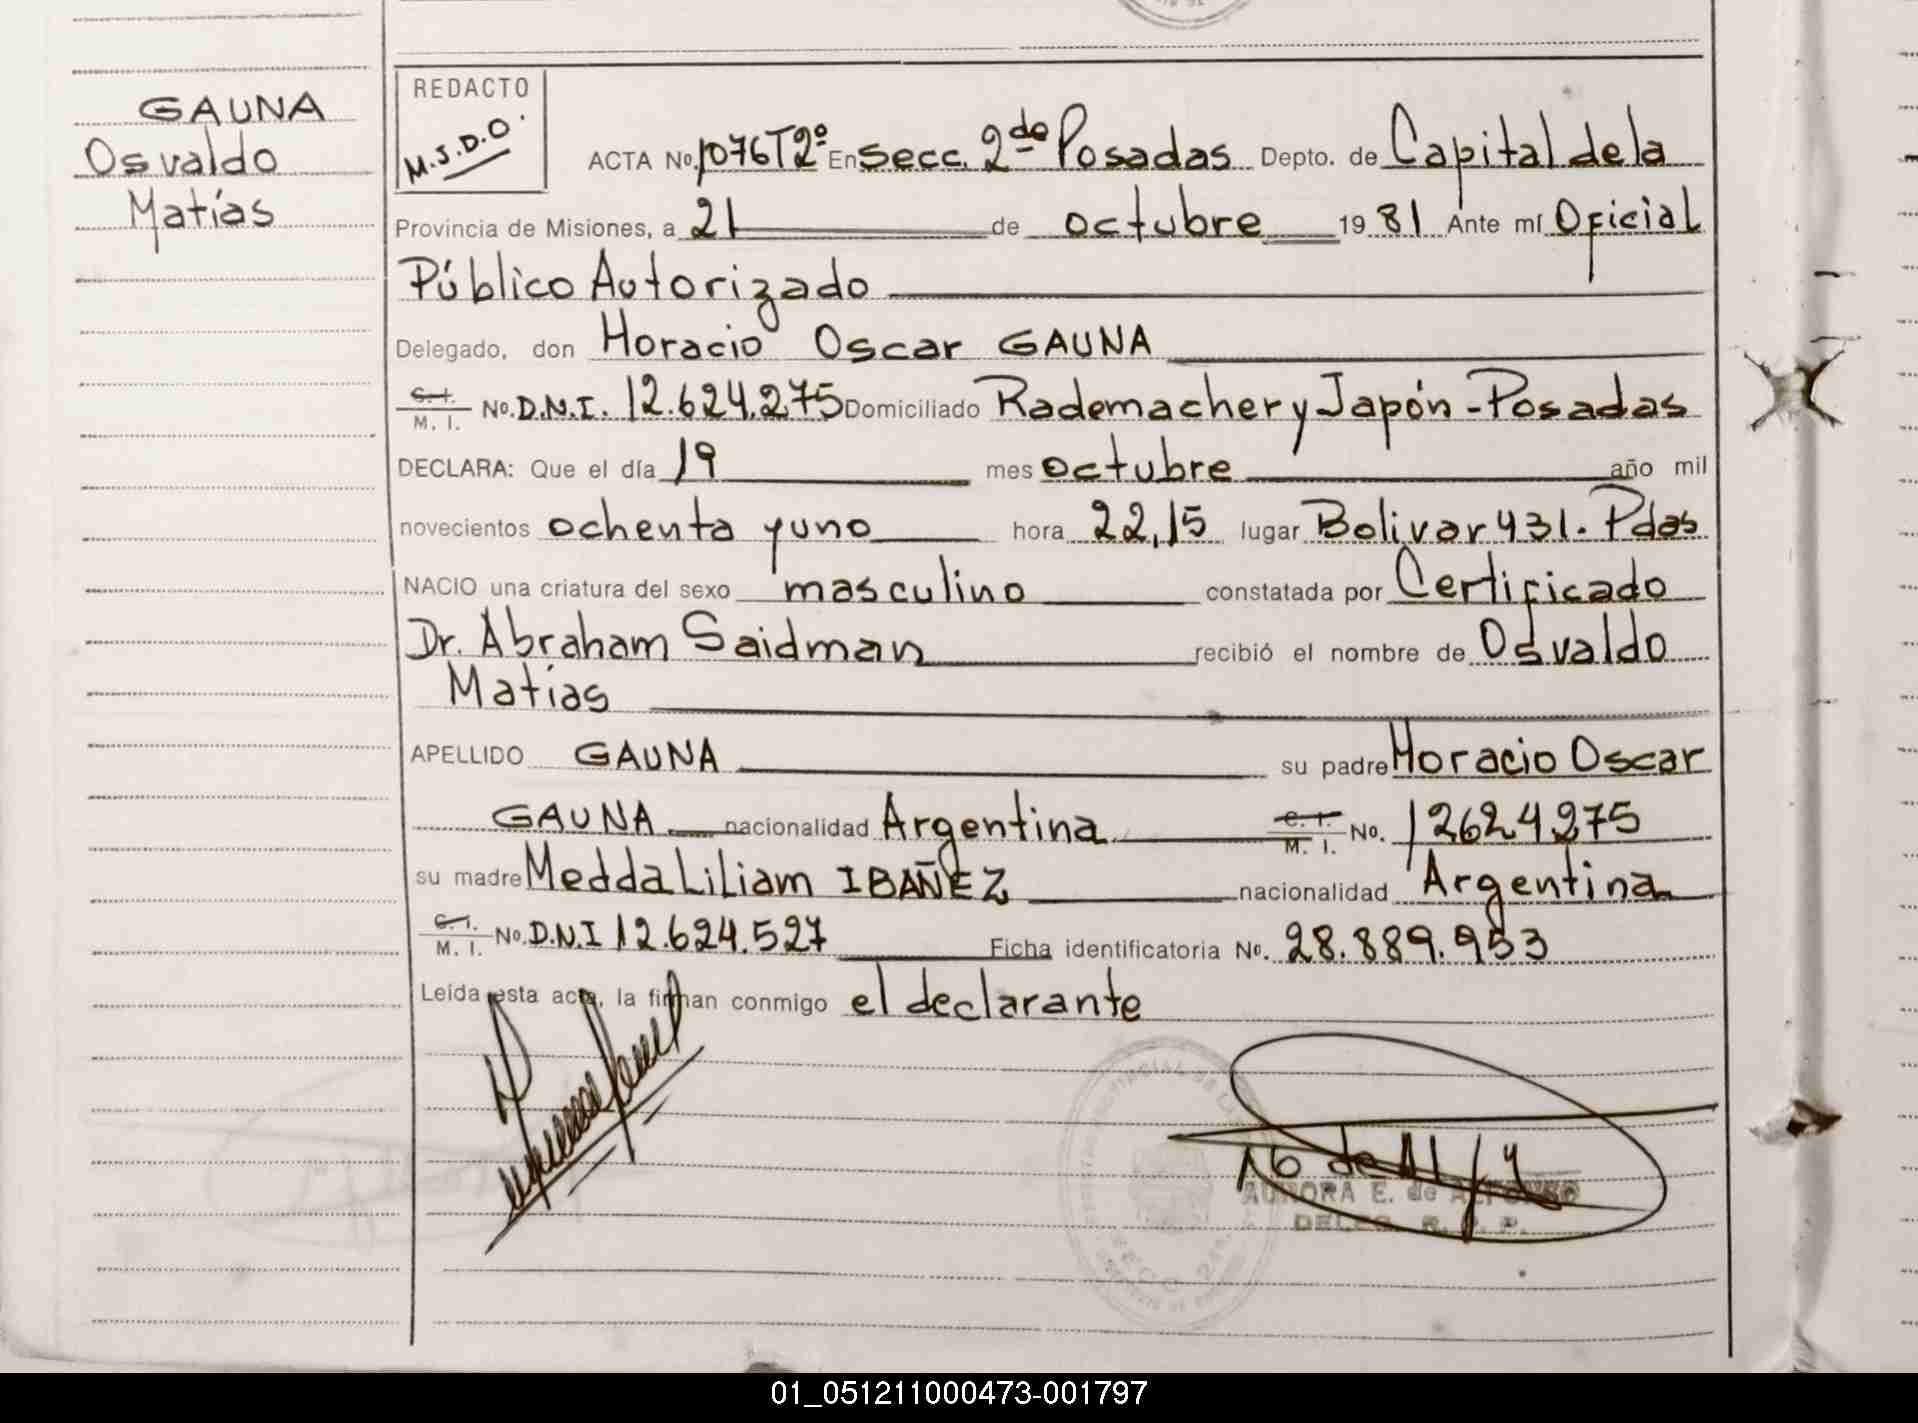 GAUNA
Osvaldo
Matías
REDACTO
M.S.D.O.
ACTA No. 1076 T2º En Secc. 2da Posadas Depto. de Capital de la
Provincia de Misiones, a 21 de octubre 19 81 Ante mí Oficial
Público Autorizado
Delegado, don Horacio Oscar GAUNA
C. I. M. I. No. D.N.I. 12.624.275 Domiciliado Rademacher y Japón - Posadas
DECLARA: Que el día 19 mes octubre año mil
novecientos ochenta y uno hora 22,15 lugar Bolivar 431. Pdas
NACIO una criatura del sexo masculino constatada por Certificado
Dr. Abraham Saidman recibió el nombre de Osvaldo
Matías
APELLIDO GAUNA su padre Horacio Oscar
GAUNA nacionalidad Argentina C. I. M. I. No. 12624275
su madre Medda Liliam IBAÑEZ nacionalidad Argentina
C. I. M. I. No. D.N.I 12.624.527 Ficha identificatoria No. 28.889.953
Leída esta acta, la firman conmigo el declarante
AURORA E. de ALFONSO
DELEG. R. P. P.
01_051211000473-001797